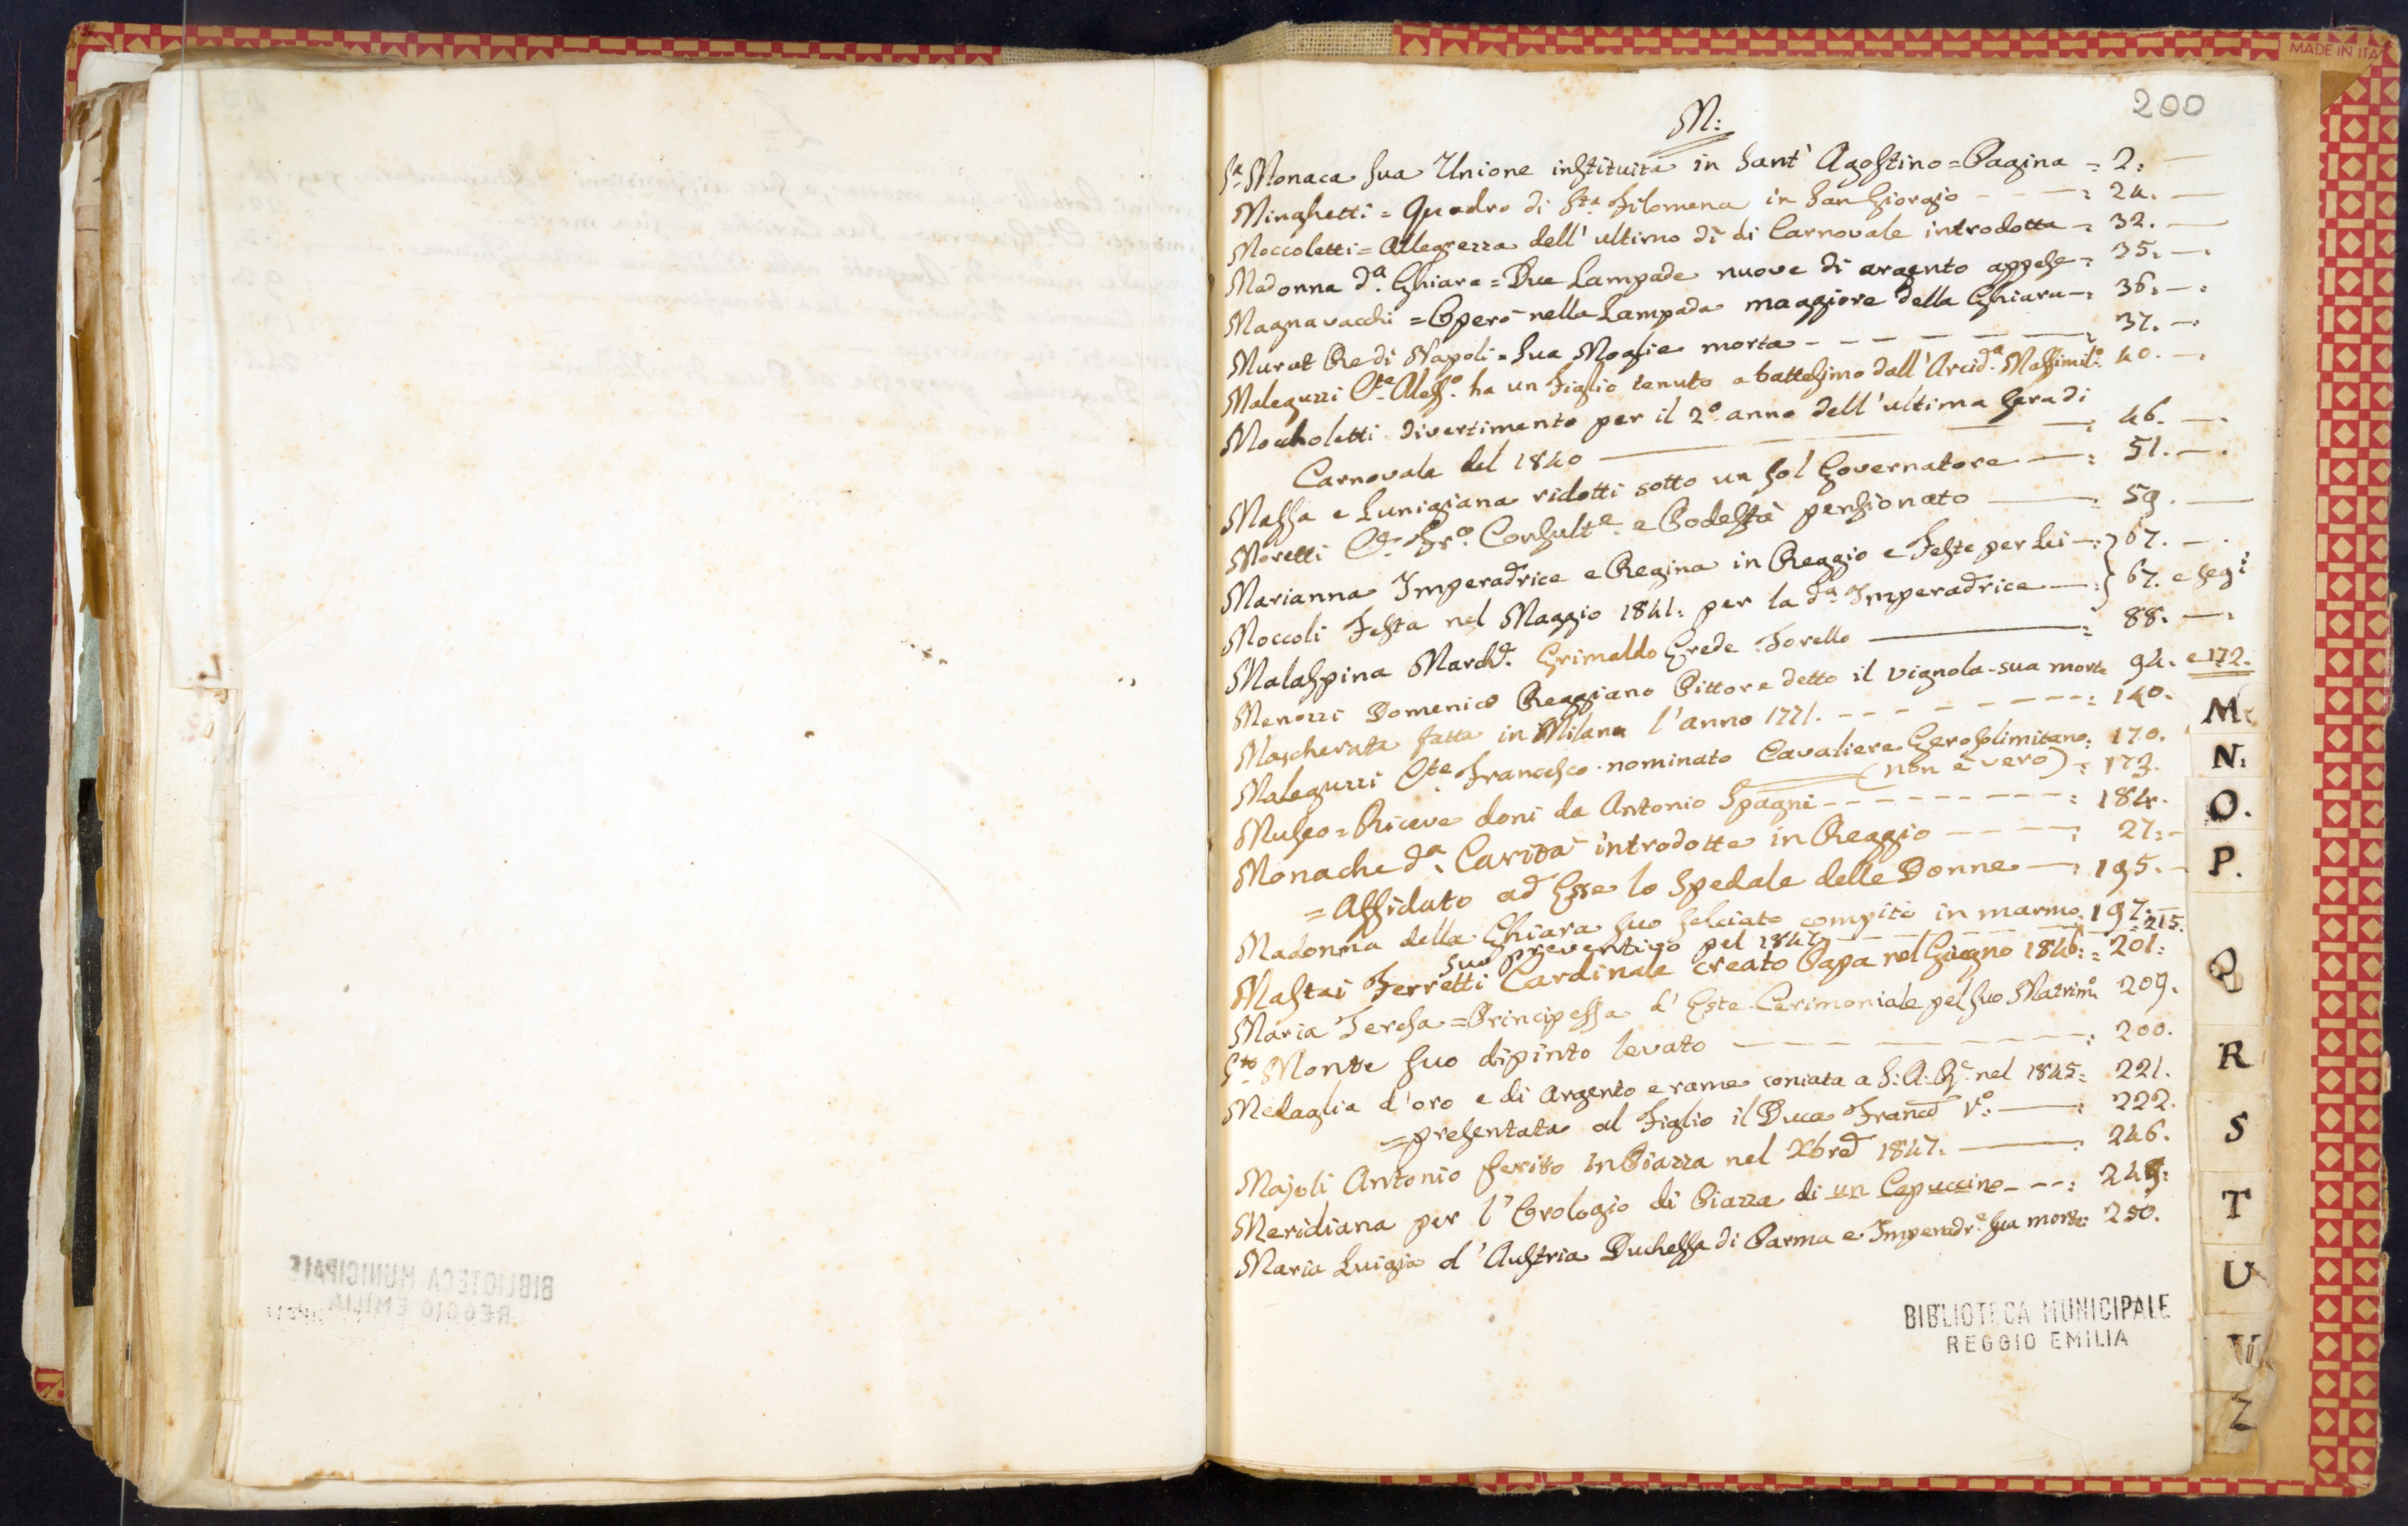 MADE IN ITA
200
M:
Sa. Monaca Sua Unione instituita in Sant' Agostino = Pagina = 2:
Minghetti = Quadro di Sta. Filomena in San Giorgio - - - : 24.
Moccoletti = Allegrezza dell' ultimo dì di Carnovale introdotta = 32.
Madonna da. Ghiara = Due Lampade nuove di argento appese = 35.
Magnavacchi = Operò nella Lampada maggiore della Ghiara = 36.
Murat Re di Napoli = Sua Moglie morta - - - - - 37.
Maleguzzi Cte. Aless.o ha un Figlio tenuto a battesimo dall' Arcid.a Massimil.o 40.
Mocholetti divertimento per il 2o. anno dell' ultima Sera di
Carnovale del 1840 : 46.
Massa e Lunigiana ridotti sotto un sol Governatore : 51.
Moretti Ce. Fr.o Consult.e e Podestà pensionato : 59.
Marianna Imperadrice e Regina in Reggio e Feste per Lei : } 67.
Moccoli Festa nel Maggio 1841: per la da. Imperadrice : } 67. e segi:
Malaspina March.e Grimaldo Erede Torello : 88.
Menozzi Domenico Reggiano Pittore detto il Vignola - sua morte 94. e 172.
Mascherata fatta in Milano l'anno 1771. - - - - - : 140.
Maleguzzi Cte. Francesco nominato Cavaliere Gerosolimitano: 170.
(non è vero) : 173.
Museo = Riceve doni da Antonio Spagni - - - - - : 184.
Monache da. Carità introdotte in Reggio - - - : 27:
= Affidato ad Esse lo Spedale delle Donne : 195.
Madonna della Ghiara suo selciato compito in marmo. 197.
Suo preventivo pel 1847 - - - - : 215.
Mastai Ferretti Cardinale creato Papa nel Giugno 1846: = 201:
Maria Teresa = Principessa d' Este Cerimoniale pel suo Matrim.o 209.
Sto. Monte Suo dipinto levato - - - - - : 200.
Medaglia d'oro e di Argento e rame coniata a S: A: R. nel 1845: 221.
= presentata al Figlio il Duca Franco V.o : 222.
Majoli Antonio ferito in Piazza nel Xbre 1847. : 246.
Meridiana per l' Orologio di Piazza di un Capuccino - - : 249:
Maria Luigia d' Austria Duchessa di Parma e Imperadr.e Sua morte: 250.
BIBLIOTECA MUNICIPALE
REGGIO EMILIA
M
N:
O.
P.
Q
R
S
T
U
V
Z